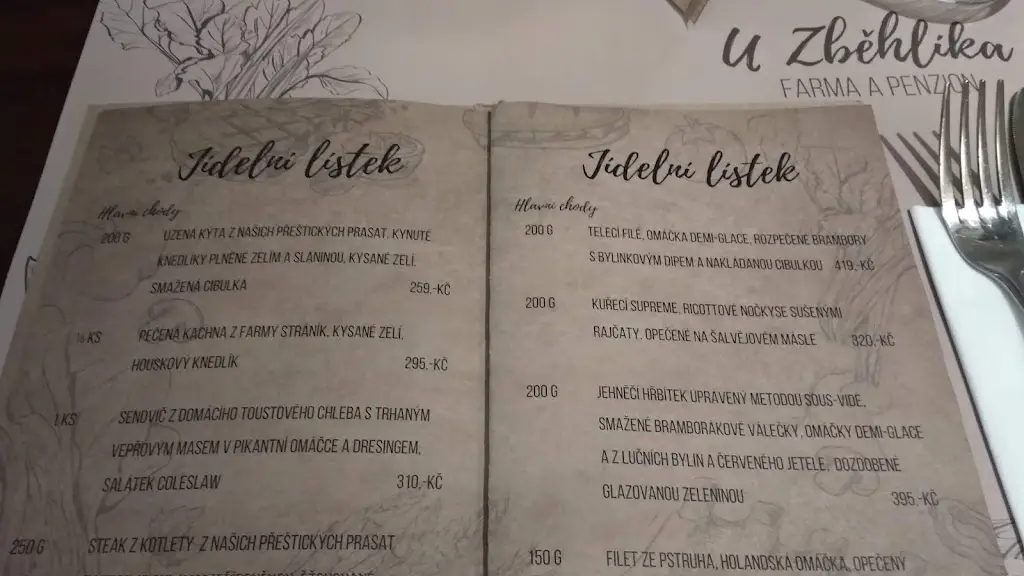 U Zběhlíka
FARMA A PENZION
Jídelní lístek
Hlavní chody
200 G UZENÁ KÝTA Z NAŠICH PŘEŠTICKÝCH PRASAT, KYNUTÉ
KNEDLÍKY PLNĚNÉ ZELÍM A SLANINOU, KYSANÉ ZELÍ,
SMAŽENÁ CIBULKA 259,-KČ
KS PEČENÁ KACHNA Z FARMY STRÁNÍK, KYSANÉ ZELÍ,
HOUSKOVÝ KNEDLÍK 295,-KČ
1 KS SENDVIČ Z DOMÁCÍHO TOUSTOVÉHO CHLEBA S TRHANÝM
VEPŘOVÝM MASEM V PIKANTNÍ OMÁČCE A DRESINGEM,
SALÁTEK COLESLAW 310,-KČ
250 G STEAK Z KOTLETY Z NAŠICH PŘEŠTICKÝCH PRASAT
Jídelní lístek
Hlavní chody
200 G TELECÍ FILÉ, OMÁČKA DEMI-GLACE, ROZPEČENÉ BRAMBORY
S BYLINKOVÝM DIPEM A NAKLÁDANOU CIBULKOU 419,-KČ
200 G KUŘECÍ SUPREME, RICOTTOVÉ NOČKYSE SUŠENÝMI
RAJČATY, OPEČENÉ NA ŠALVĚJOVÉM MÁSLE 320,-KČ
200 G JEHNĚČÍ HŘBÍTEK UPRAVENÝ METODOU SOUS-VIDE,
SMAŽENÉ BRAMBORÁKOVÉ VÁLEČKY, OMÁČKY DEMI-GLACE
A Z LUČNÍCH BYLIN A ČERVENÉHO JETELE, DOZDOBENÉ
GLAZOVANOU ZELENINOU 395,-KČ
150 G FILET ZE PSTRUHA, HOLANDSKÁ OMÁČKA, OPEČENÝ